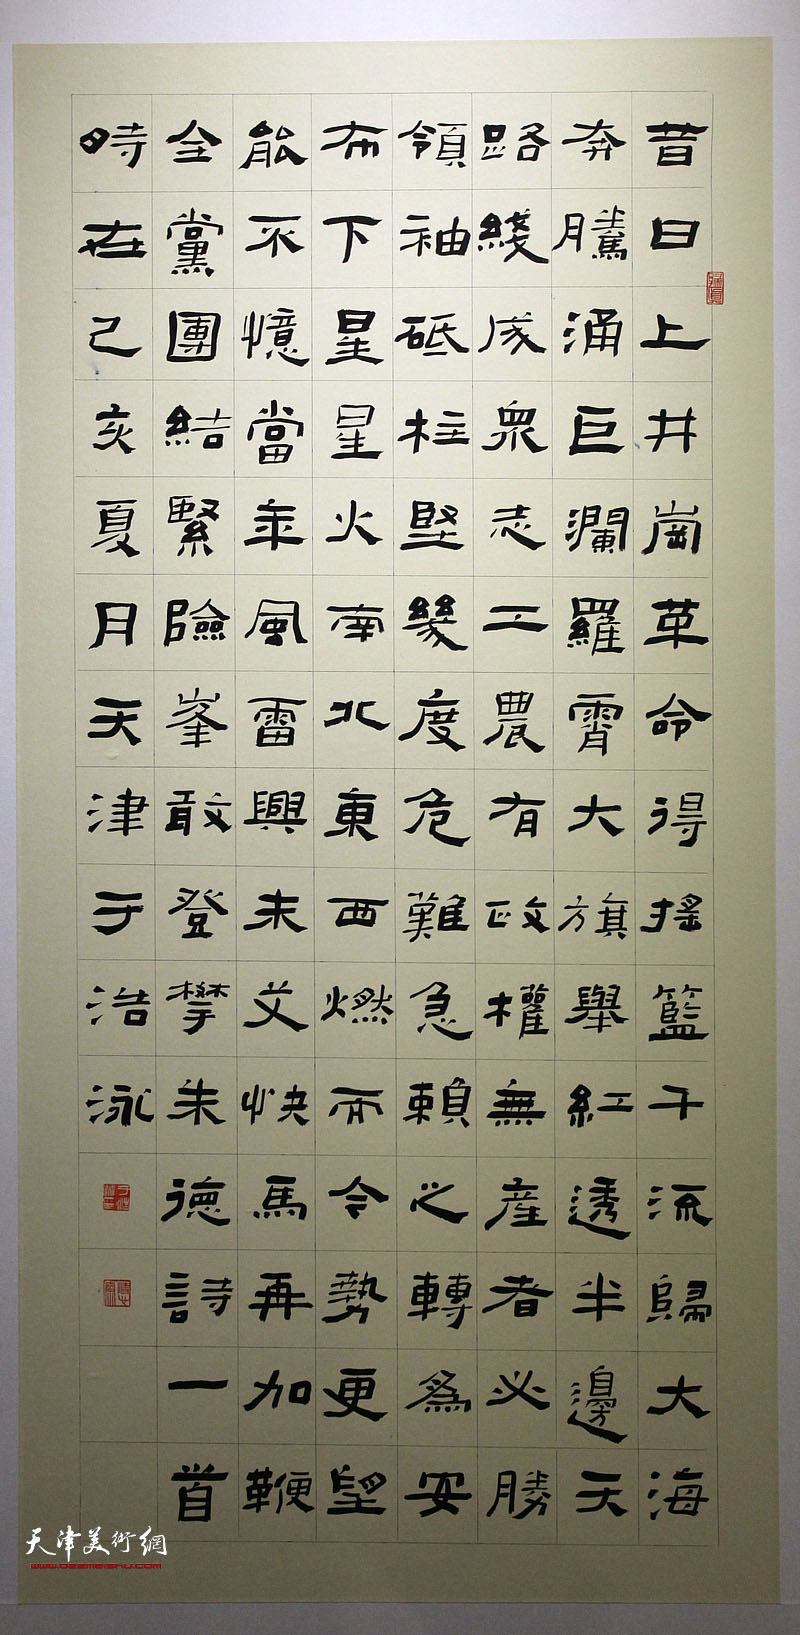 昔日上井崗革命得搖籃千流歸大海
奔騰涌巨瀾羅霄大旗舉紅透半邊天
路綫成衆志工農有政權無產者必勝
領袖砥柱堅幾度危難急賴之轉爲安
布下星星火南北東西燃而令勢更望
能不憶當年風雷興未艾快馬再加鞭
全黨團結緊險峯敢登攀朱德詩一首
時在己亥夏月天津于浩泳
天津美術網
www.022meishu.com